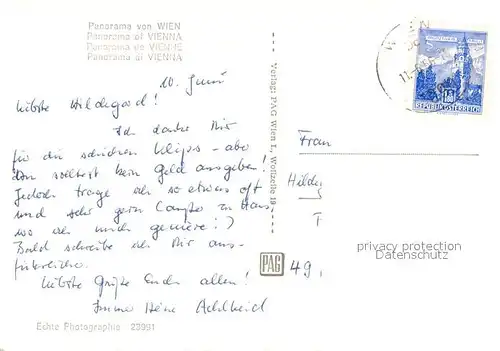 Panorama von WIEN
Panorama of VIENNA
Panorama de VIENNE
Panorama di VIENNA
10. Juni
Liebste Hildegard!
Ich danke Dir
für die schicken Klips - aber
Du solltest kein Geld ausgeben!
Jedoch trage ich so etwas oft
und sehr gern
wo ich mich geniere!)
Bald schreibe ich Dir aus-
führlicher.
Liebste Grüße Euch allen!
Immer Deine Adelheid
Echte Photographie 23991
Verlag: PAG Wien I., Wollzeile 19
PAG
WIEN
REPUBLIK ÖSTERREICH
Frau
Hildeg
F
49,
privacy protection
Datenschutz